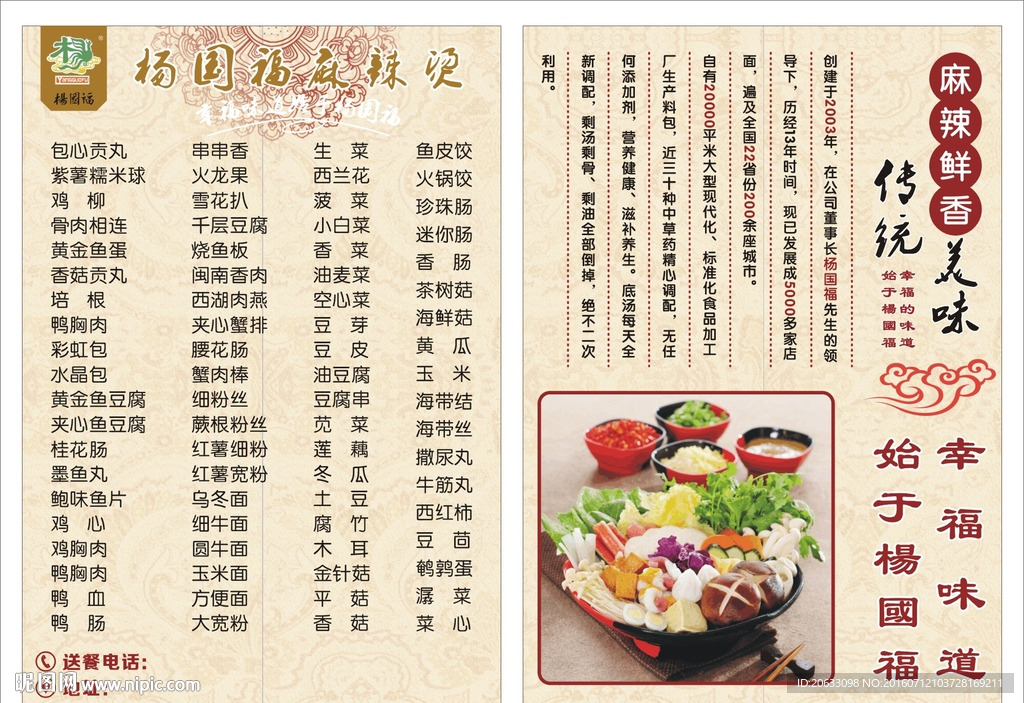 杨国福麻辣烫
幸福味道始于杨国福
YangGuoFu
楊國福
包心贡丸
紫薯糯米球
鸡 柳
骨肉相连
黄金鱼蛋
香菇贡丸
培 根
鸭胸肉
彩虹包
水晶包
黄金鱼豆腐
夹心鱼豆腐
桂花肠
墨鱼丸
鲍味鱼片
鸡 心
鸡胸肉
鸭胸肉
鸭 血
鸭 肠
串串香
火龙果
雪花扒
千层豆腐
烧鱼板
闽南香肉
西湖肉燕
夹心蟹排
腰花肠
蟹肉棒
细粉丝
蕨根粉丝
红薯细粉
红薯宽粉
乌冬面
细牛面
圆牛面
玉米面
方便面
大宽粉
生 菜
西兰花
菠 菜
小白菜
香 菜
油麦菜
空心菜
豆 芽
豆 皮
油豆腐
豆腐串
苋 菜
莲 藕
冬 瓜
土 豆
腐 竹
木 耳
金针菇
平 菇
香 菇
鱼皮饺
火锅饺
珍珠肠
迷你肠
香 肠
茶树菇
海鲜菇
黄 瓜
玉 米
海带结
海带丝
撒尿丸
牛筋丸
西红柿
豆 苗
鹌鹑蛋
潺 菜
菜 心
送餐电话:
地址:
昵图网 www.nipic.com
麻辣鲜香
美味
传统
幸福的味道
始于楊國福
创建于2003年，在公司董事长杨国福先生的领
导下，历经13年时间，现已发展成5000多家店
面，遍及全国22省份200余座城市。
自有20000平米大型现代化、标准化食品加工
厂生产料包，近三十种中草药精心调配，无任
何添加剂，营养健康、滋补养生。底汤每天全
新调配，剩汤剩骨、剩油全部倒掉，绝不二次
利用。
幸福味道
始于楊國福
ID:20633098 NO:20160712103728169211